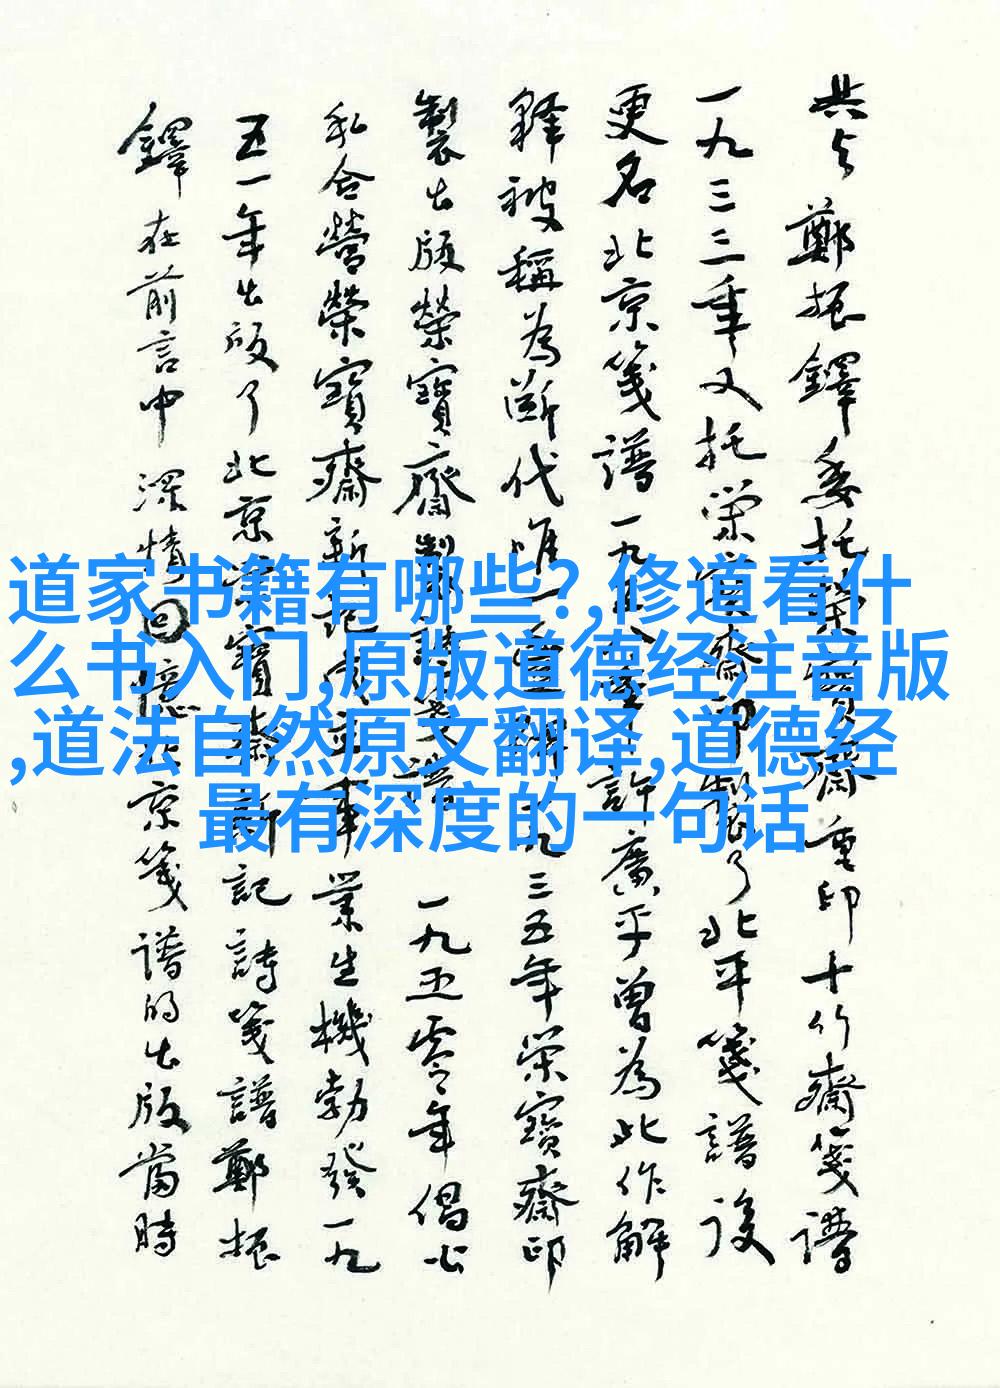 道家书籍有哪些?,修道看什
么书入门,原版道德经注音版
,道法自然原文翻译,道德经
最有深度的一句话
共与鄭振鐸委托榮寶齋重印十竹齋箋譜
一九三三年又托榮寶齋印製了北平箋譜後
更名北京箋譜一九五八年許廣平曾為此作解
釋被稱為斷代唯一九三五年榮寶齋印
製出版榮寶齋製詩箋譜 一九五零年倡公
私合營榮寶齋新記業生機勃發一九
五一年出版了北京榮寶齋新記詩箋譜鄭振
鐸在前言中深情回憶北京箋譜的出版當時